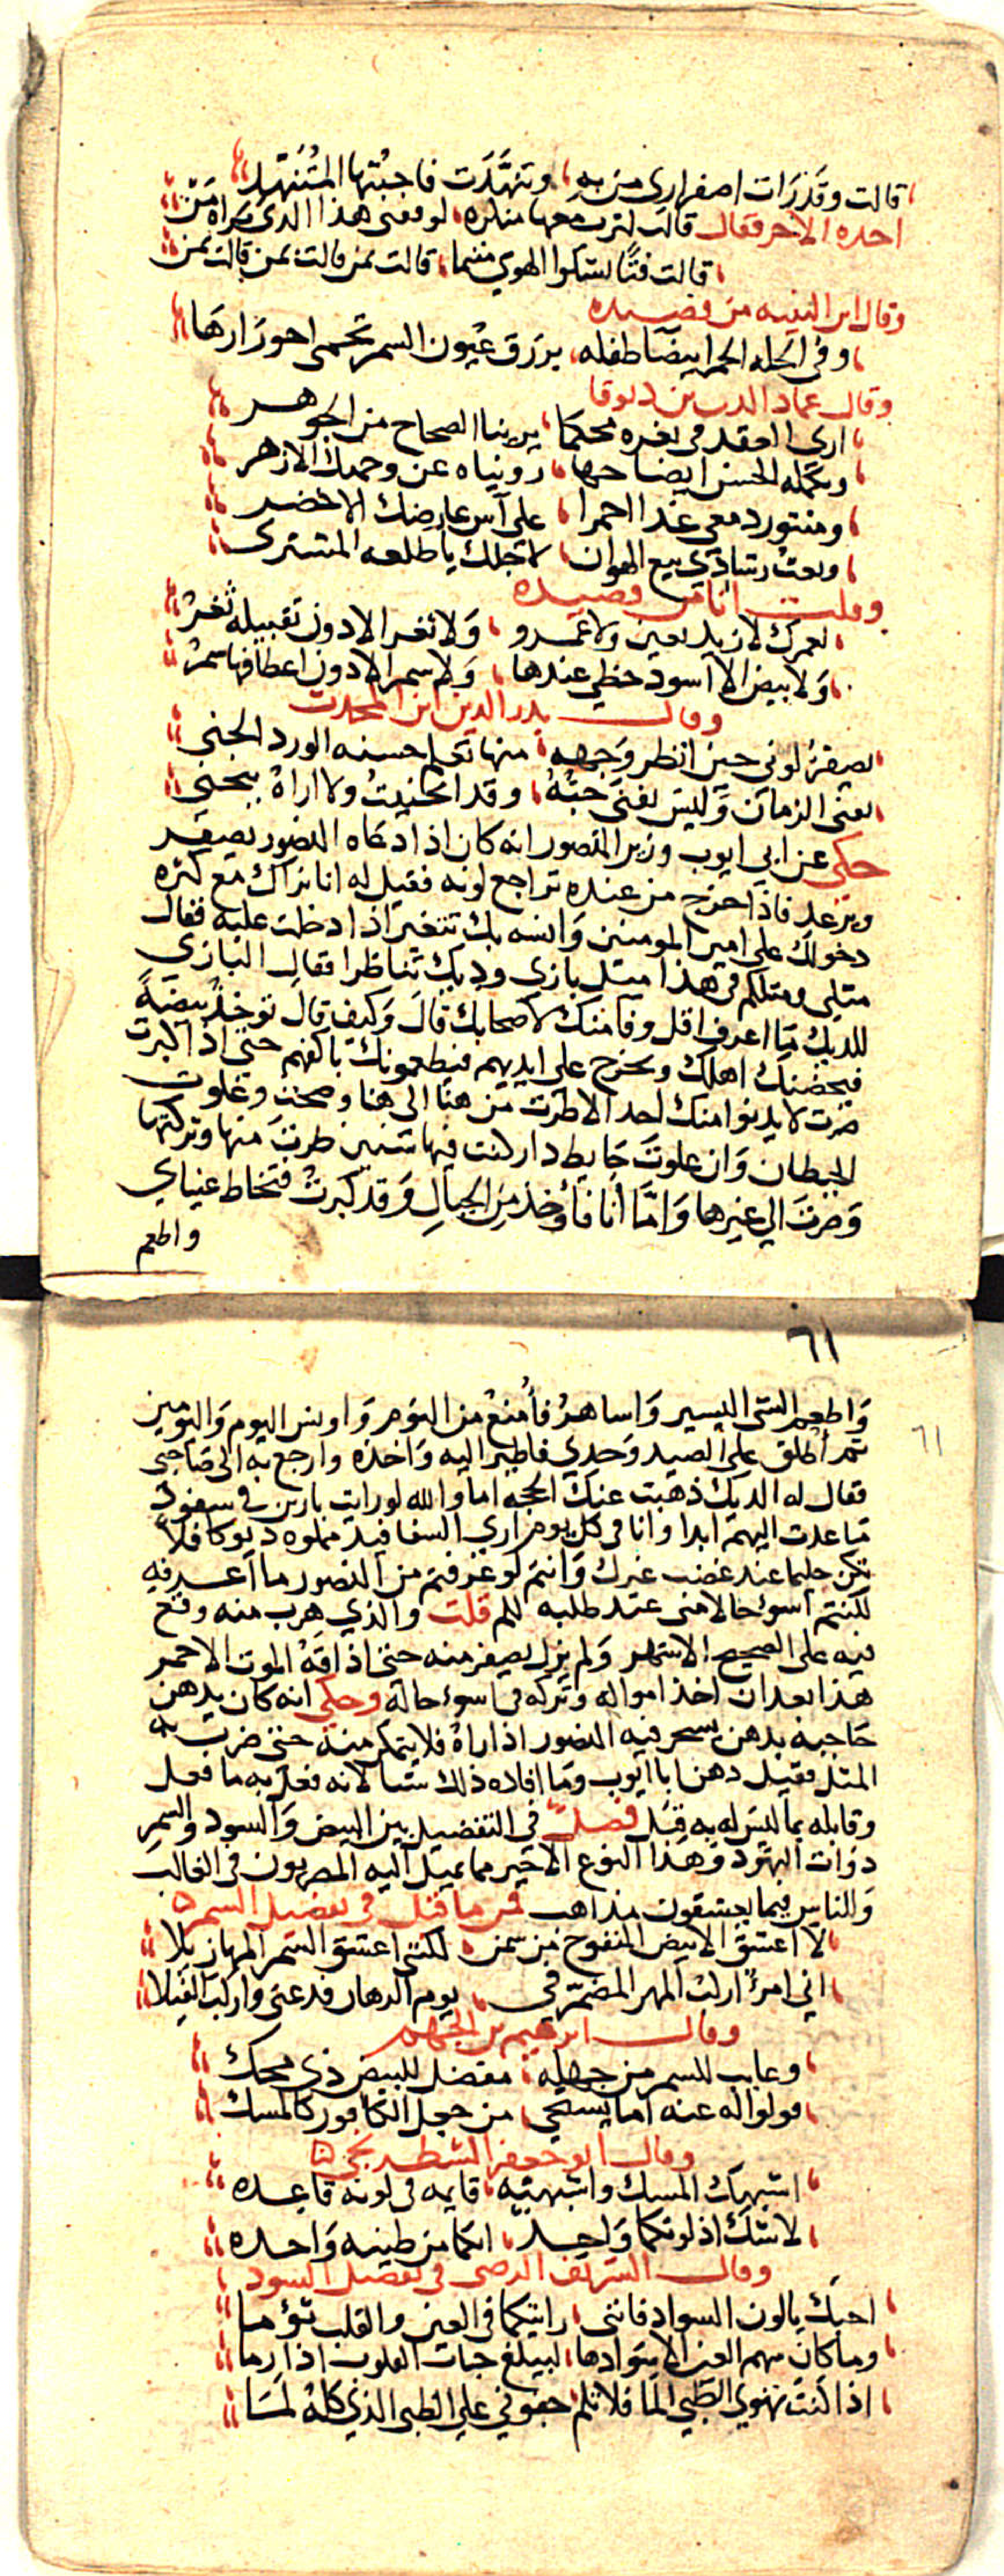 قالت وقد رات اصفراري من به وتنهدت فاجبتها المتنهد
اخذه الاخر فقال قالت لترب معها منكره لوقفتي هذا الذي نراه من
قالت فتى يشكوا الهوى متيما قالت بمن قالت بمن قالت بمن
وقال ابن النبيه من قصيده
وفي الحله الحمرا بيضا طفله بزرق عيون السمر تحمى احورارها
وقال عماد الدين بن دبوقا
ارى العقد في ثغره محكما يرينا الصحاح من الجوهر
وتكمله الحسن ايضاحها رويناه عن وجهك الازهر
ومنثور دمعي غدا احمرا على آس عارضك الاخضر
وبعت رشادي ببيع الهوان لاجلك يا طلعه المشتري
وقلت انا من قصيده
لعمرك لا زيد يعين ولا عمرو ولا ثغر الا دون تقبيله ثغر
ولا بيض الا اسود حظي عندها ولا سمر الا دون اعطافها سمر
وقال بدر الدين ابن المحدث
يصفر لوني حين انظر وجهه منها تكا حسنه الورد الجني
يفنى الزمان وليس يفنى حبه وقد انحنيت ولا اراه ينحني
حكى عن ابي ايوب وزير المنصور انه كان اذا دعاه المنصور يصفر
ويرعد فاذا خرج من عنده تراجع لونه فقيل له انا نراك مع كثره
دخولك على امير المومنين وانسه بك تتغير اذا دخلت عليه فقال
مثلي ومثلكم في هذا مثل بازي وديك تناظرا فقال البازي
للديك ما اعرف اقل وفا منك لاصحابك قال وكيف قال توخذ بيضة
فيحضنك اهلك وتخرج على ايديهم فيطعمونك باكفهم حتى اذا كبرت
صرت لا يدنوا منك احد الا طرت من هنا الى هنا وصحت وعلوت
الحيطان وان علوت حايط دار كنت فيها سنين طرت منها وتركتها
وصرت الى غيرها واما انا فاوخذ من الجبال وقد كبرت فتخاط عيناي
واطعم
٦١
واطعم الشي اليسير واساهر فامنع من النوم واونس اليوم واليومين
ثم اطلق على الصيد وحدي فاطير اليه واخذه وارجع به الى صاحبي
فقال له الديك ذهبت عنك الحجه اما والله لو رايت بازين في سفود
ما عدت اليهم ابدا وانا في كل يوم ارى السفافيد مملوه ديوكا فلا
تكن حليما عند غضب غيرك وانتم لو عرفتم من المنصور ما اعرفه
لكنتم اسوء حالا مني عند طلبه لكم قلت والذي هرب منه وقع
فيه على الصحيح الاشهر ولم يزل يصفر منه حتى اذاقه الموت الاحمر
هذا بعد ان اخذ امواله وتركه في اسوء حاله وحكى انه كان يدهن
حاجبه بدهن يسحر فيه المنصور اذا راه فلا يتمكر منه حتى ضرب به
المثل فقيل دهن ابا ايوب وما افاده ذلك شيا لانه فعل به ما فعل
وقابله بما ليس له به قبل فصل في التفضيل بين البيض والسود والسمر
ذوات النهود وهذا النوع الاخير مما يميل اليه المصريون في الغالب
وللناس فيما يعشقون مذاهب فمن ما قيل في تفضيل السمر
لا اعشق الابيض المنفوخ من سمن لكنني اعشق السمر المهازيلا
اني امرؤ اركب المهر المضمر في يوم الرهان فدعني واركب الفيلا
وقال ابرهيم بن الجهم
وعايب للسمر من جهله مفضل للبيض ذي محك
قولوا له عنه اما يستحي من جعل الكافور كالمسك
وقال ابو جعفر الشطرنجي
اشبهك المسك واشبهته قايمه في لونه قاعده
لا شك اذ لونكما واحد انكما من طينه واحده
وقال الشريف الرضي في تفضيل السود
احبك يا لون السواد فانني رايتكما في العين والقلب تؤما
وما كان سهم العين الا سوادها ليبلغ حبات القلوب اذا رما
اذا كنت تهوى الظبي الما فلا تلم جنوني على الظبي الذي كله لما